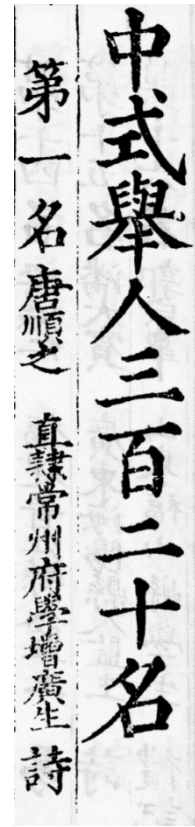 中式舉人三百二十名
第一名唐順之 直隸常州府學增廣生 詩